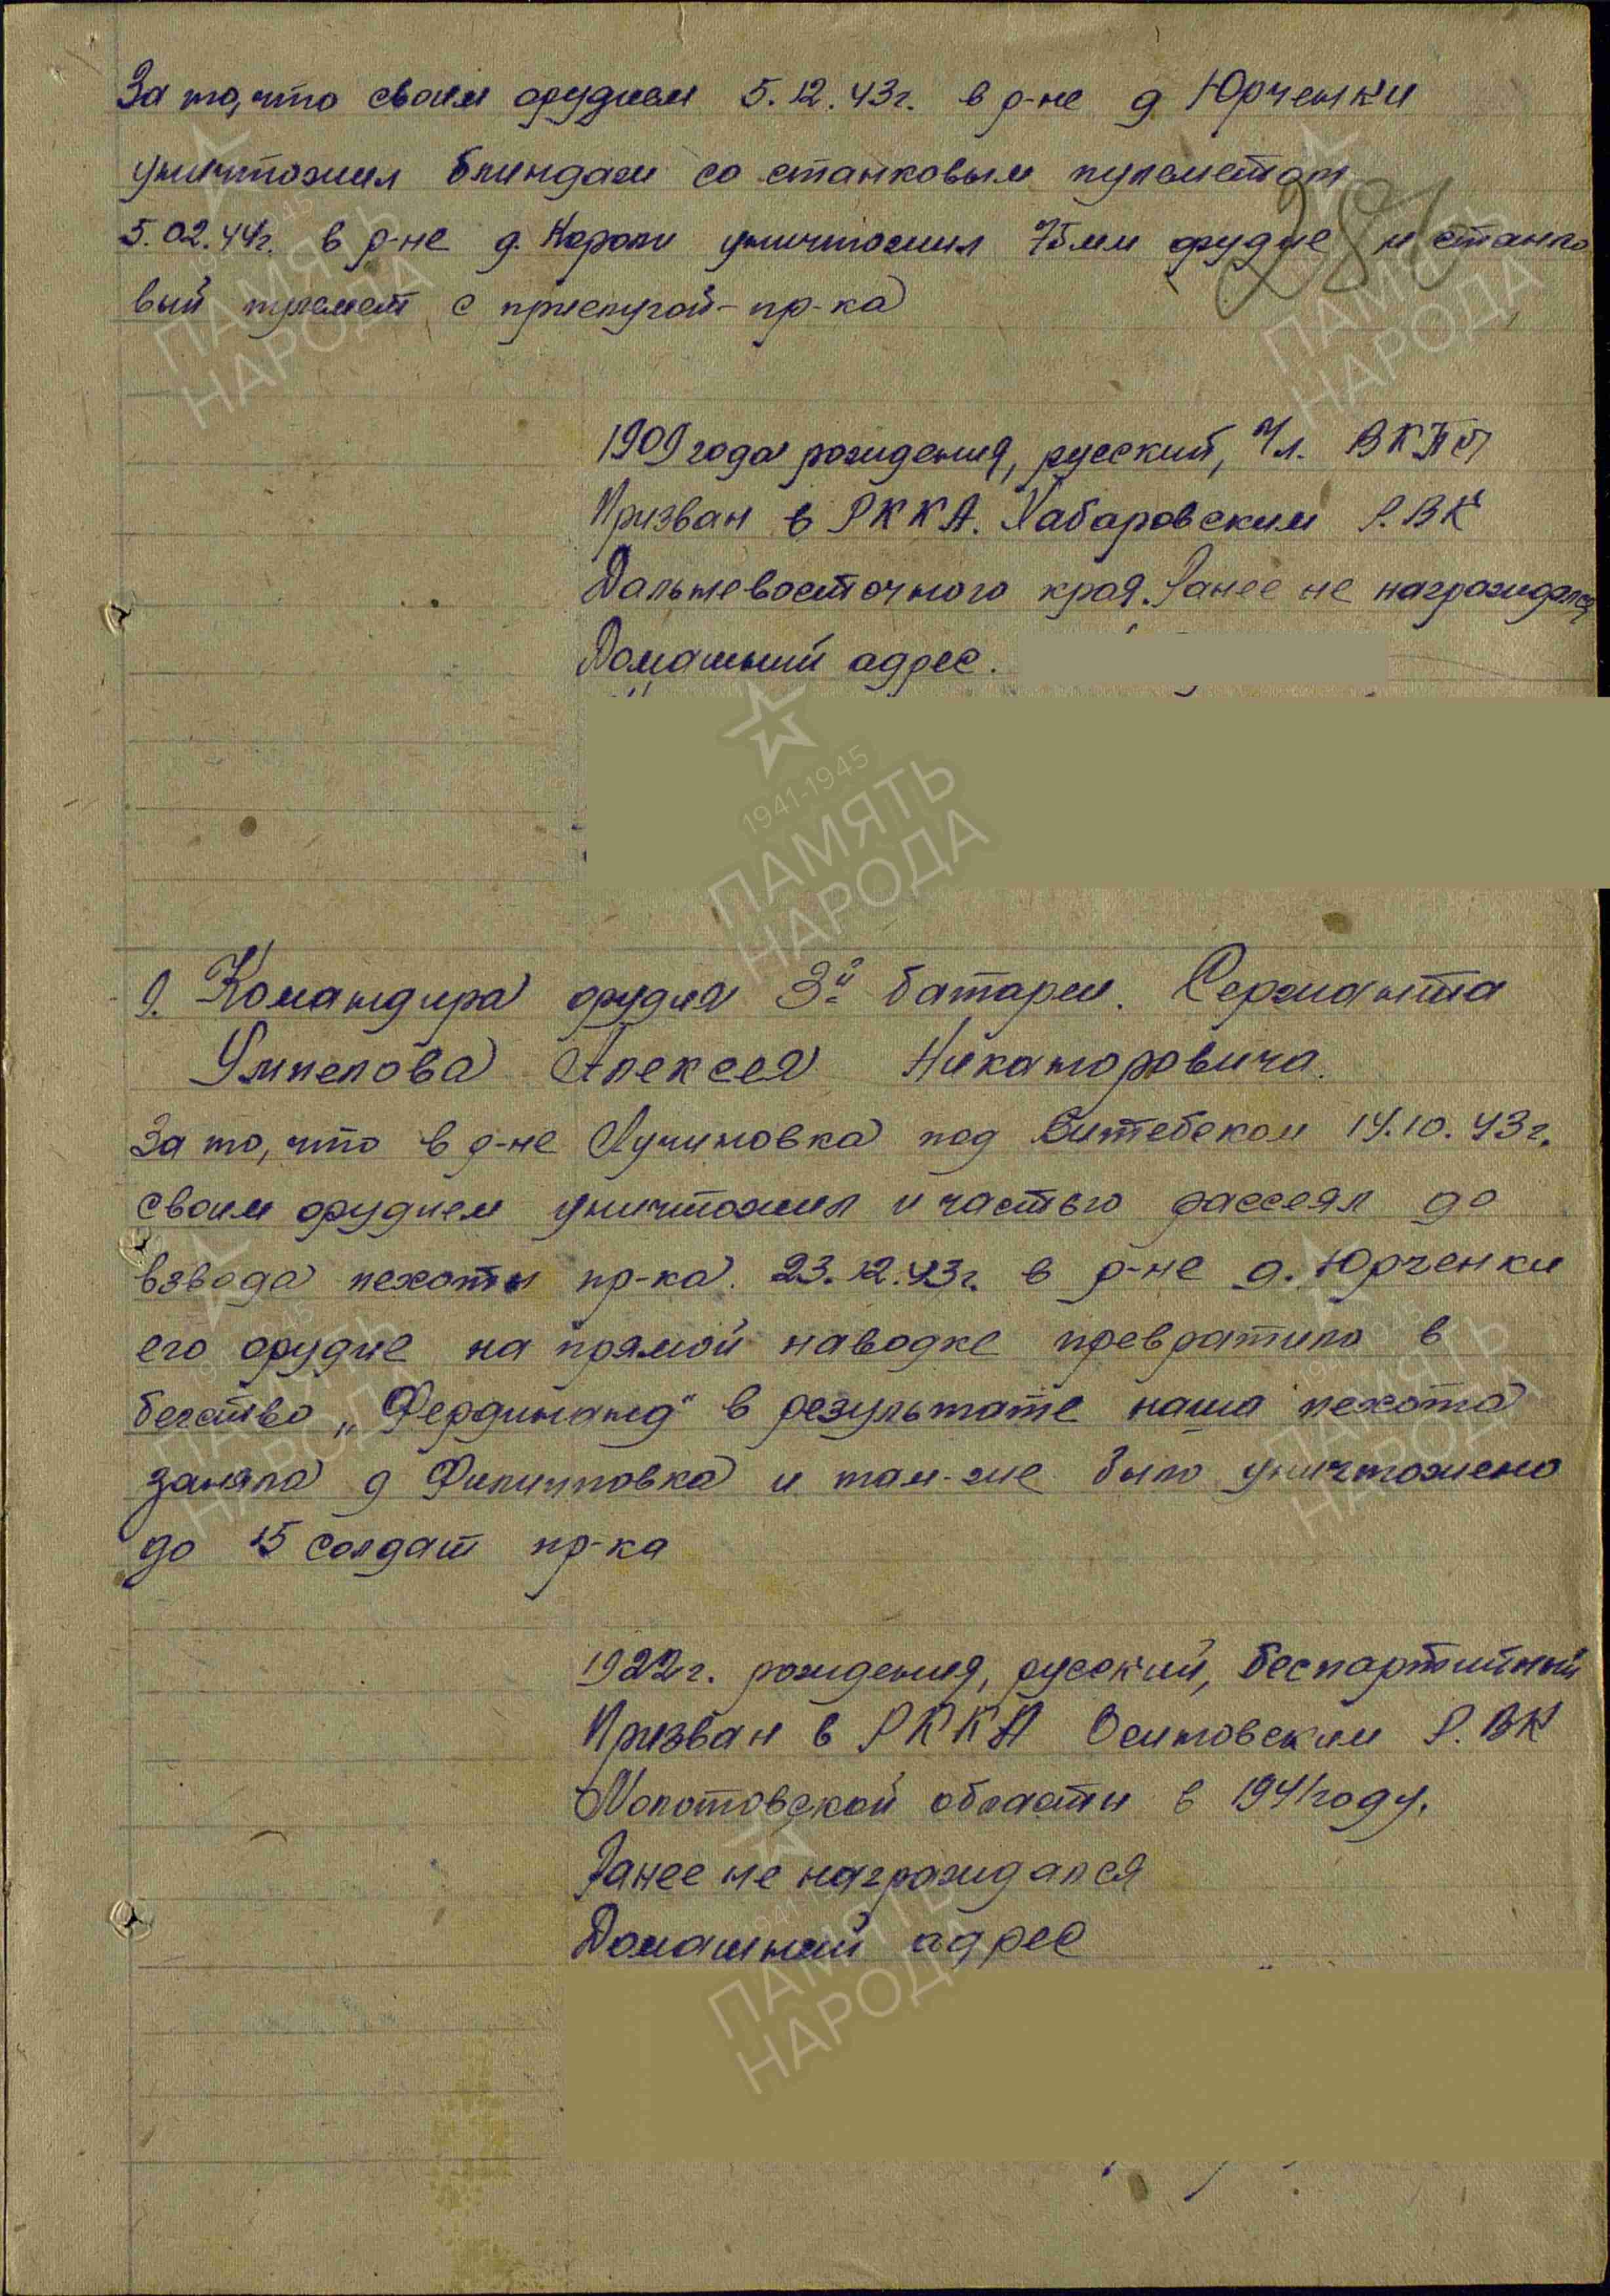 За то, что своим орудием 5.12.43г. в р-не д Юрченки
уничтожил блиндаж со станковым пулеметом
5.02.44г. в р-не д. Кароли уничтожил 75мм орудие и станко
вый пулемет с прислугой пр-ка
1909 года рождения, русский, чл. ВКПб
Призван в РККА. Хабаровским Р.ВК
Дальневосточного края. Ранее не награждался
Домашний адрес.
9. Командира орудия 3й батареи. Сержанта
Алексея Никаноровича.
За то, что в р-не Лучиновка под Витебском 14.10.43г.
своим орудием уничтожил и частью рассеял до
взвода пехоты пр-ка. 23.12.43г. в р-не д. Юрченки
его орудие на прямой наводке превратило в
бегство „Фердинанд" в результате наша пехота
заняла д Филипповка и там-же было уничтожено
до 15 солдат пр-ка
1922г. рождения, русский, беспартийный
Призван в РККА Осиновским Р.ВК
Молотовской области в 1941 году.
Ранее не награждался
Домашний адрес
1941-1945
ПАМЯТЬ
НАРОДА